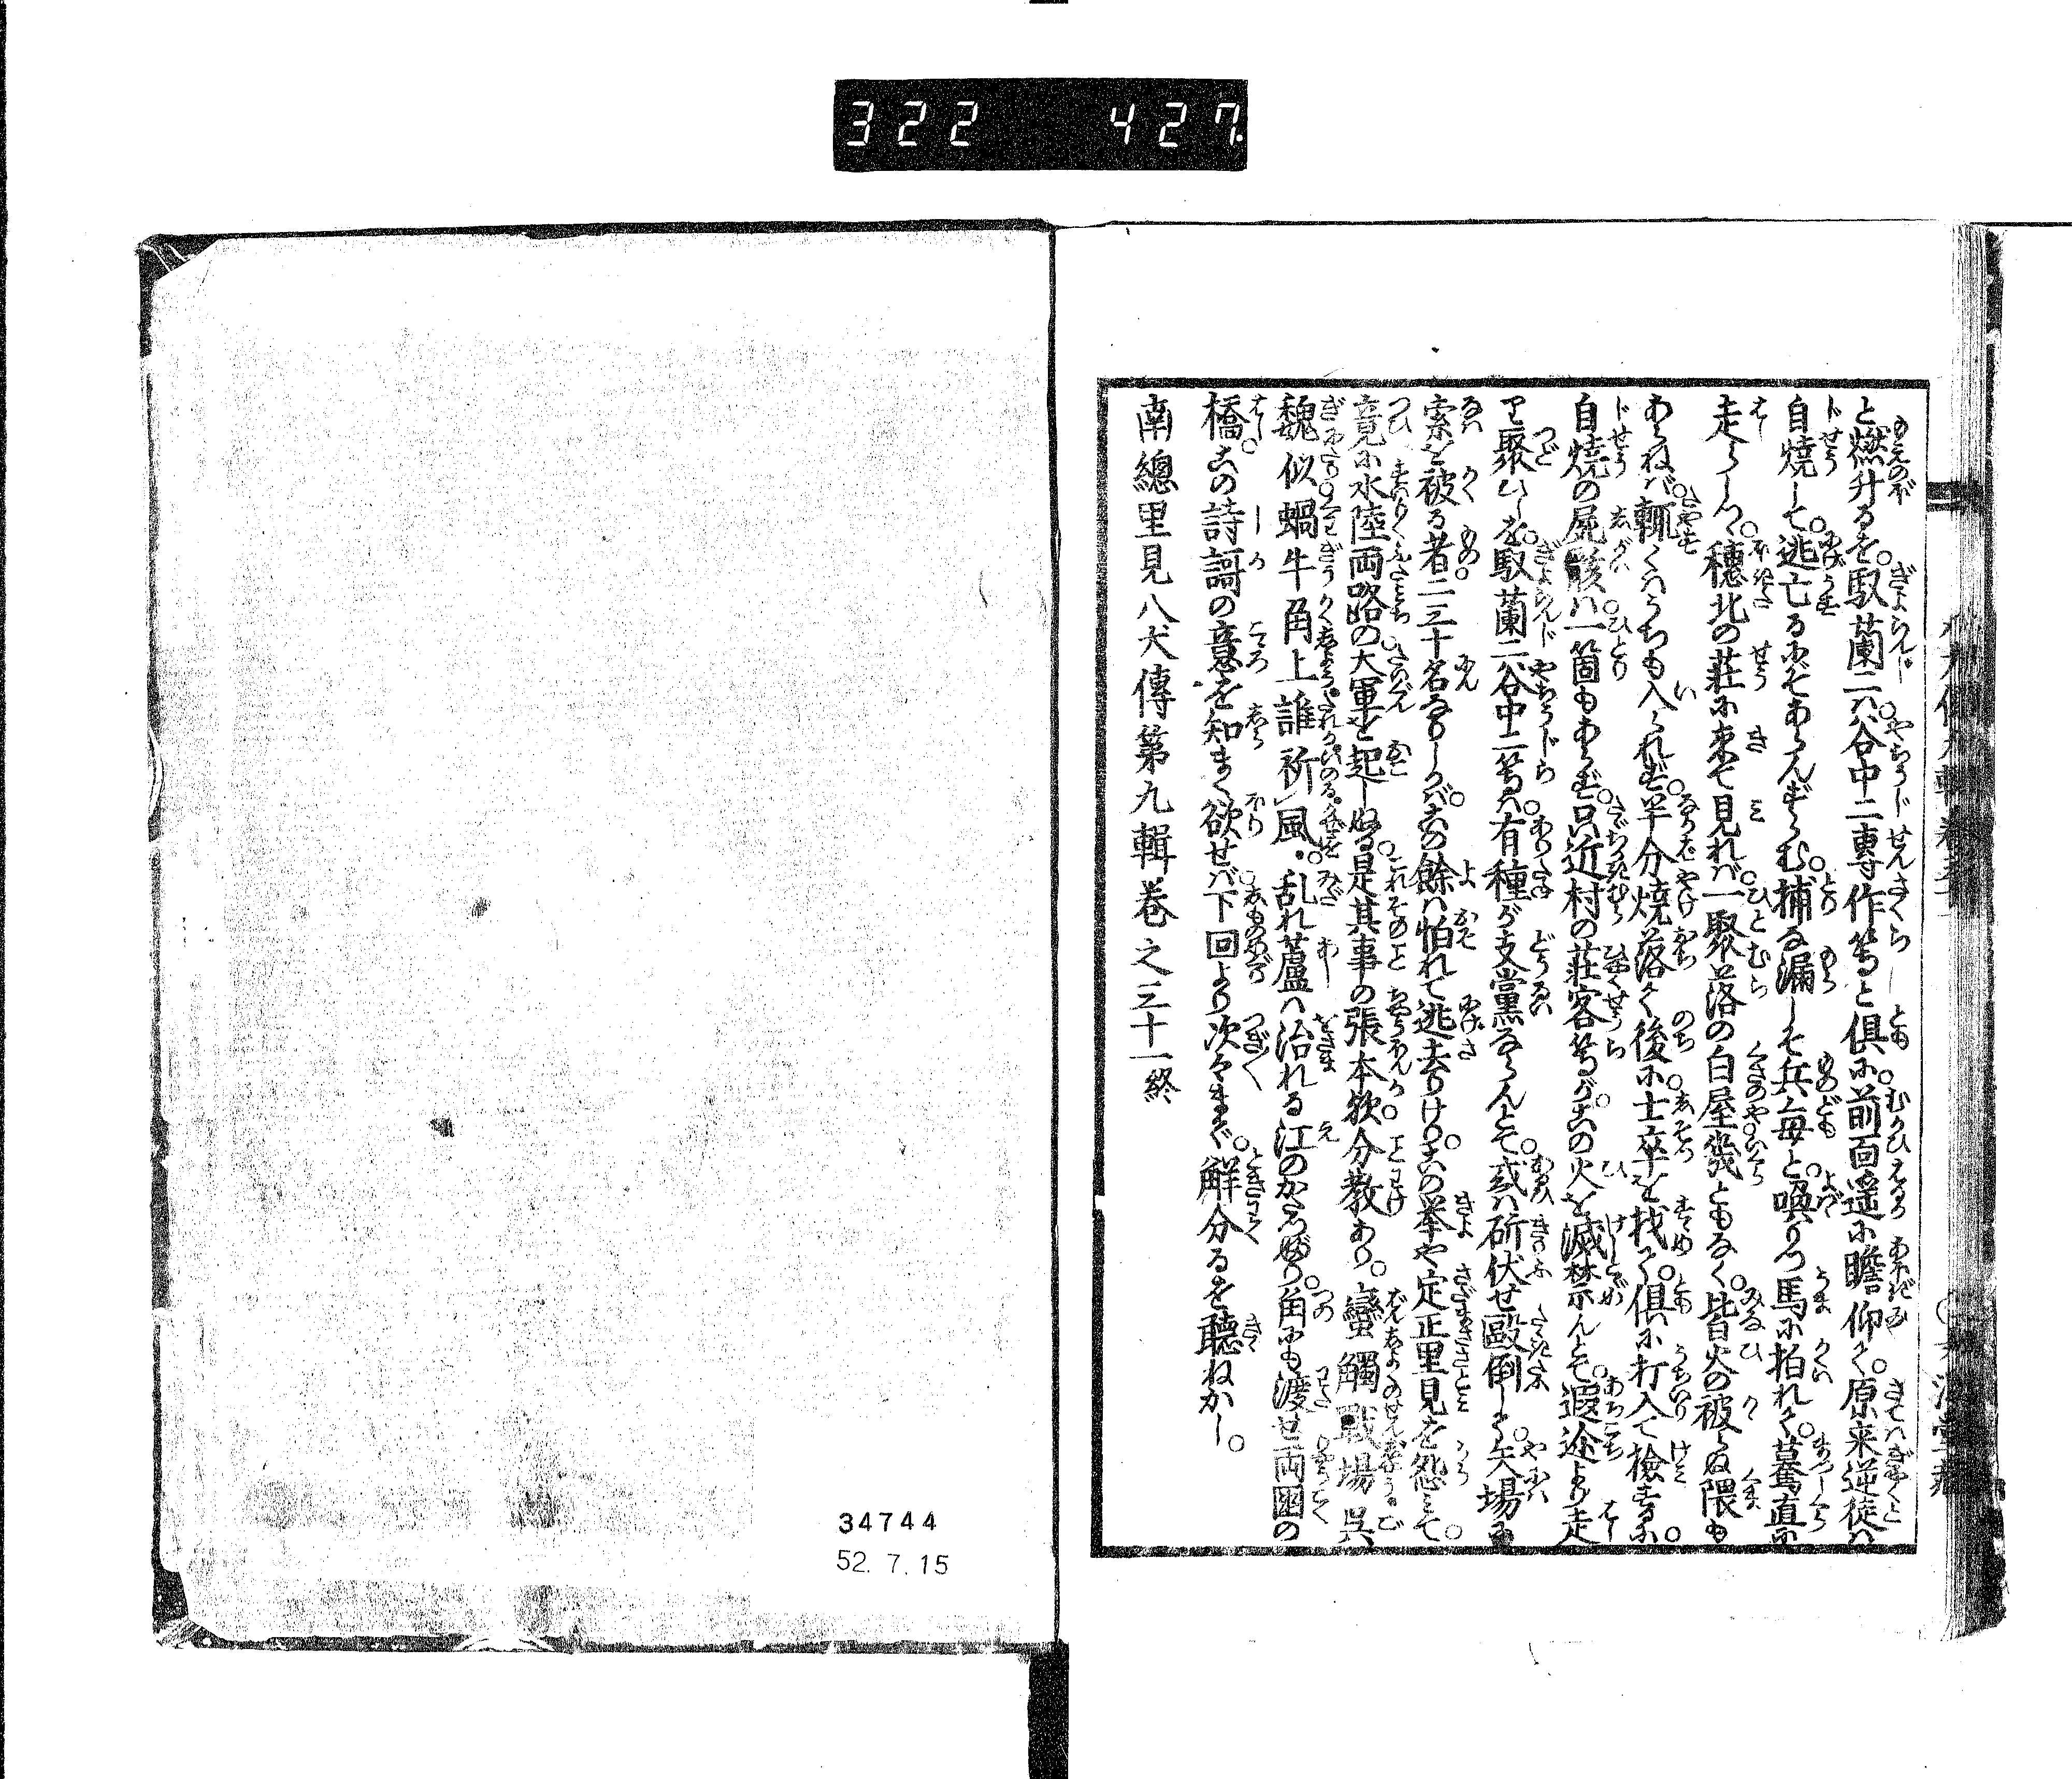 322 427.
と燃升るを。馭蘭二ハ谷中二專作等と倶に前面遥に瞻仰て。原来逆徒ハ
自焼して逃亡るにぞあらんずらむ。捕な漏しそ兵毎と。喚りつ馬に拍れて。驀直に
走らしつ。穂北の荘に来て見れバ。一聚落の白屋幾ともなく。皆火の被らぬ隈も
あらねバ。輙くハうちも入られず。半分焼落て後に。士卒を找て。倶に打入て檢するに。
自焼の屍骸ハ一箇もあらず。只近村の荘客等が。この火を滅禁んとて。遐迩より走
り聚ひしを。馭蘭二谷中二等ハ。有種が支黨ならんとて。或ハ斫伏せ毆倒しつ。矢場に
索を被る者。二三十名なりしかバ。其餘ハ怕れて逃去りけり。この挙や定正里見を怨ミて。
竟に水陸両路の大軍を起しぬる。是其事の張本歟。分教あり。蠻觸戰場呉
魏似蝸牛角上誰祈風。乱れ蘆ハ治れる江のかたつぶり。角にも渡せ両國の
橋。この詩謌の意を知まく欲せバ。下回より次々まで。解分るを聴ねかし。
南總里見八犬傳第九輯巻之三十一終
34744
52.7.15